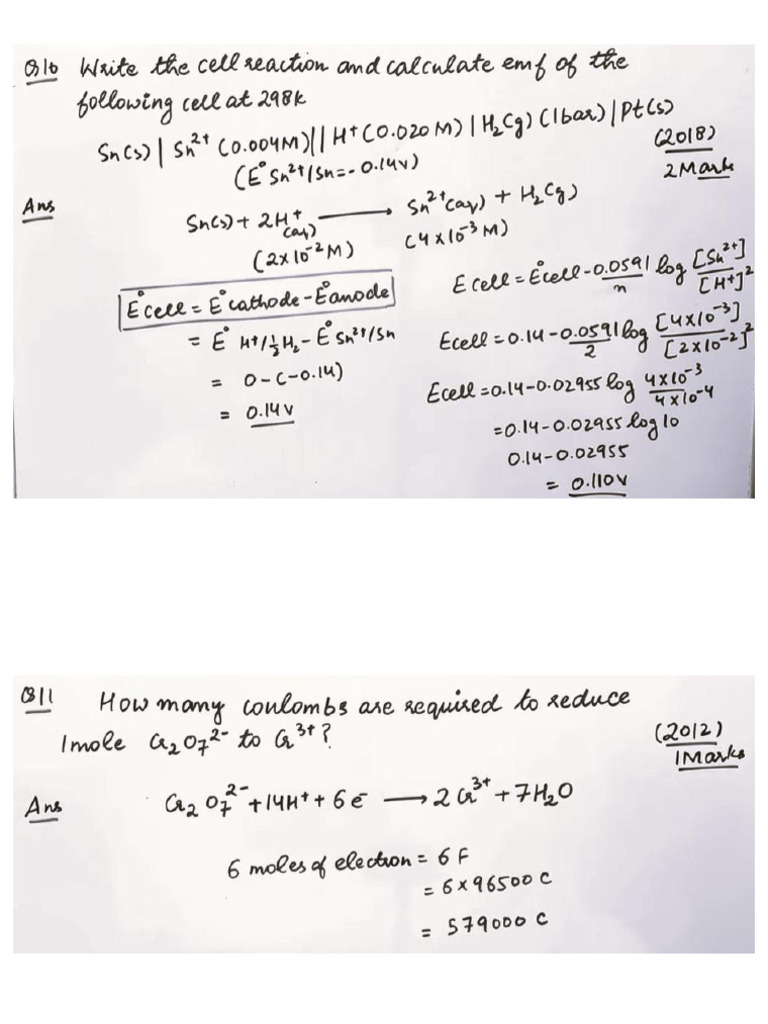 Q10 Write the cell reaction and calculate emf of the
following cell at 298K
Sn(s) | Sn²⁺ (0.004M) || H⁺ (0.020M) | H₂(g) (1bar) | Pt(s)
(E° Sn²⁺/Sn = -0.14V)
(2018)
2 Marks
Ans
Sn(s) + 2H⁺(aq) ⟶ Sn²⁺(aq) + H₂(g)
(2×10⁻² M) (4×10⁻³ M)
E°cell = E°cathode - E°anode
= E° H⁺/½H₂ - E° Sn²⁺/Sn
= 0-(-0.14)
= 0.14V
Ecell = E°cell - 0.0591/n log [Sn²⁺]/[H⁺]²
Ecell = 0.14 - 0.0591/2 log [4×10⁻³]/[2×10⁻²]²
Ecell = 0.14 - 0.02955 log 4×10⁻³/4×10⁻⁴
= 0.14 - 0.02955 log 10
0.14 - 0.02955
= 0.110V
Q11 How many coulombs are required to reduce
1 mole Cr₂O₇²⁻ to Cr³⁺?
(2012)
1 Marks
Ans
Cr₂O₇²⁻ + 14H⁺ + 6e⁻ ⟶ 2Cr³⁺ + 7H₂O
6 moles of electron = 6 F
= 6 × 96500 C
= 579000 C